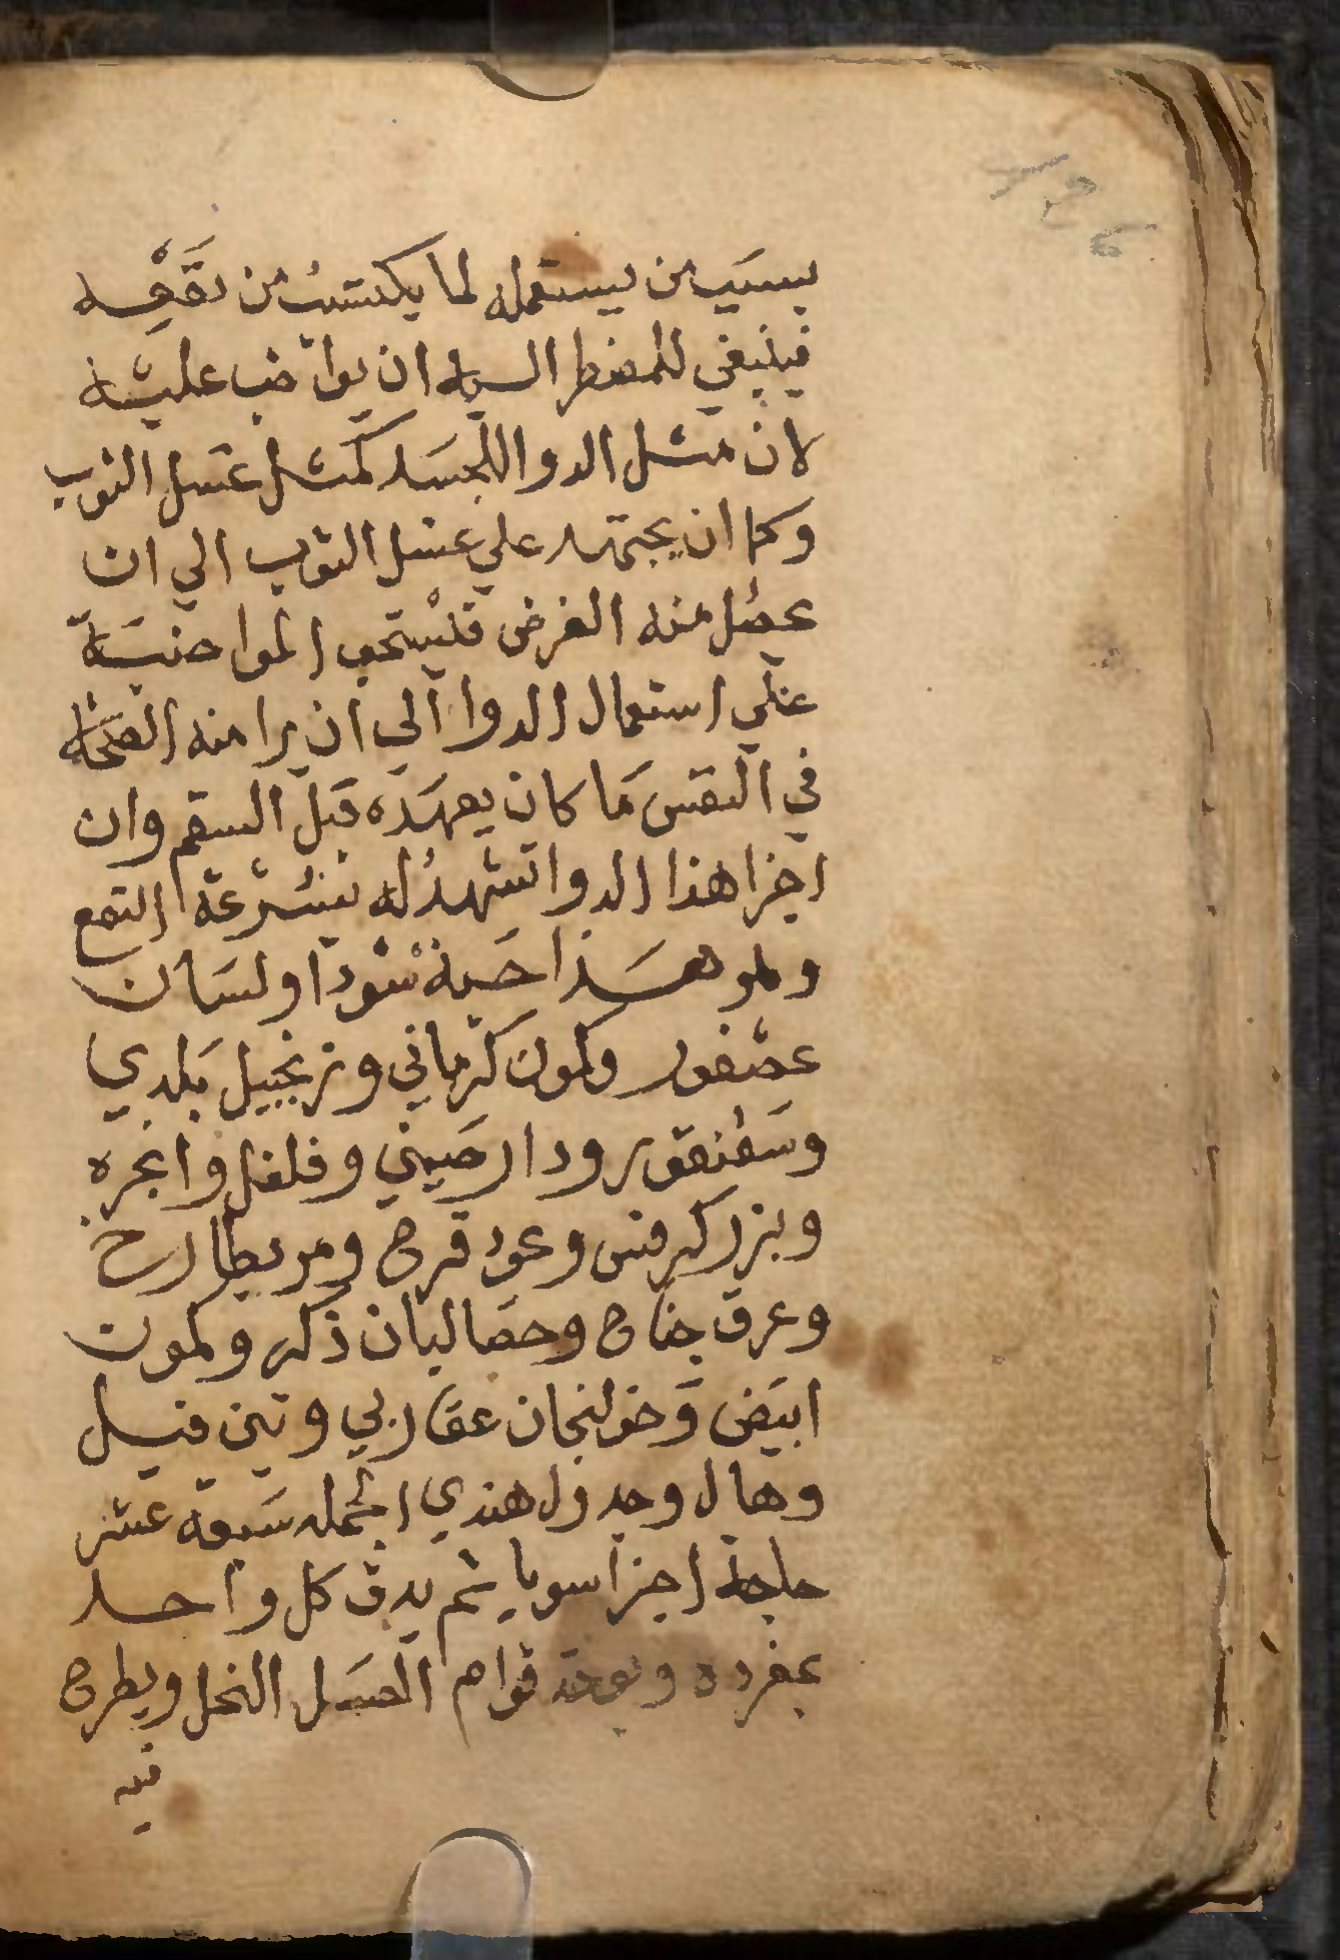 بسبب من يستعمله لما يكتسب من نفعه
فينبغي للمضطر اليه ان يواضب عليه
لان مثل الدوا للجسد كمثل غسل الثوب
وكما ان يجتهد علي غسل الثوب الي ان
يحصل منه الغرض فليستحب المواضبة
علي استعمال الدوا الي ان يرا منه الصحة
في النفس ما كان يعهده قبل السقم وان
اجزا هذا الدوا تشهد له بسرعة النفع
وهو هذا حبة سودا ولسان
عصفور وكمون كرماني وزنجبيل بلدي
وسقنقور ودارصيني وفلفل وانجره
وبزر كرفس وعود قرح
وعرق جناح وحصا لبان ذكر وكمون
ابيض وخولنجان عقاربي وتين فيل
وهال وجدول هندي الجمله سبعة عشر
حاجة اجزا سويا ثم يدق كل واحد
بمفرده قوام العسل النحل ويطرح
فيه